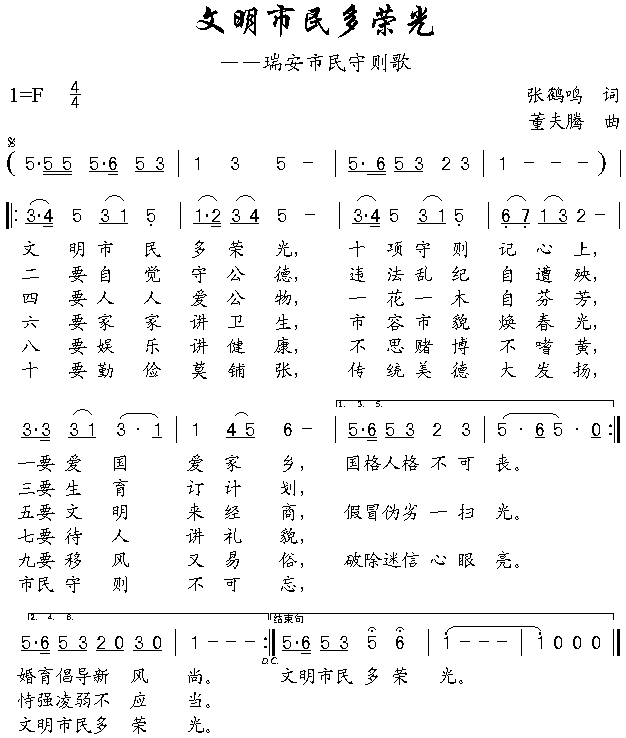 文明市民多荣光
——瑞安市民守则歌
1=F 4/4
张鹤鸣 词
董夫腾 曲
( 5·5 5 5·6 5 3 | 1 3 5 - | 5·6 5 3 2 3 | 1 - - - ) |
‖: 3·4 5 3 1 5 | 1·2 3 4 5 - | 3·4 5 3 1 5 | 6 7 1 3 2 - |
文 明 市 民 多 荣 光, 十 项 守 则 记 心 上,
二 要 自 觉 守 公 德, 违 法 乱 纪 自 遭 殃,
四 要 人 人 爱 公 物, 一 花 一 木 自 芬 芳,
六 要 家 家 讲 卫 生, 市 容 市 貌 焕 春 光,
八 要 娱 乐 讲 健 康, 不 思 赌 博 不 嗜 黄,
十 要 勤 俭 莫 铺 张, 传 统 美 德 大 发 扬,
1. 3. 5.
3·3 3 1 3 · 1 | 1 4 5 6 - | 5·6 5 3 2 3 | 5 · 6 5 · 0 :‖
一要 爱 国 爱 家 乡, 国格人格 不 可 丧。
三要 生 育 订 计 划,
五要 文 明 来 经 商, 假冒伪劣 一 扫 光。
七要 待 人 讲 礼 貌,
九要 移 风 又 易 俗, 破除迷信 心 眼 亮。
市民 守 则 不 可 忘,
2. 4. 6. 结束句
5·6 5 3 2 0 3 0 | 1 - - - :‖ 5·6 5 3 5 6 | 1 - - - | 1 0 0 0 ‖
D.C.
婚育倡导新 风 尚。 文明市民 多 荣 光。
恃强凌弱不 应 当。
文明市民多 荣 光。